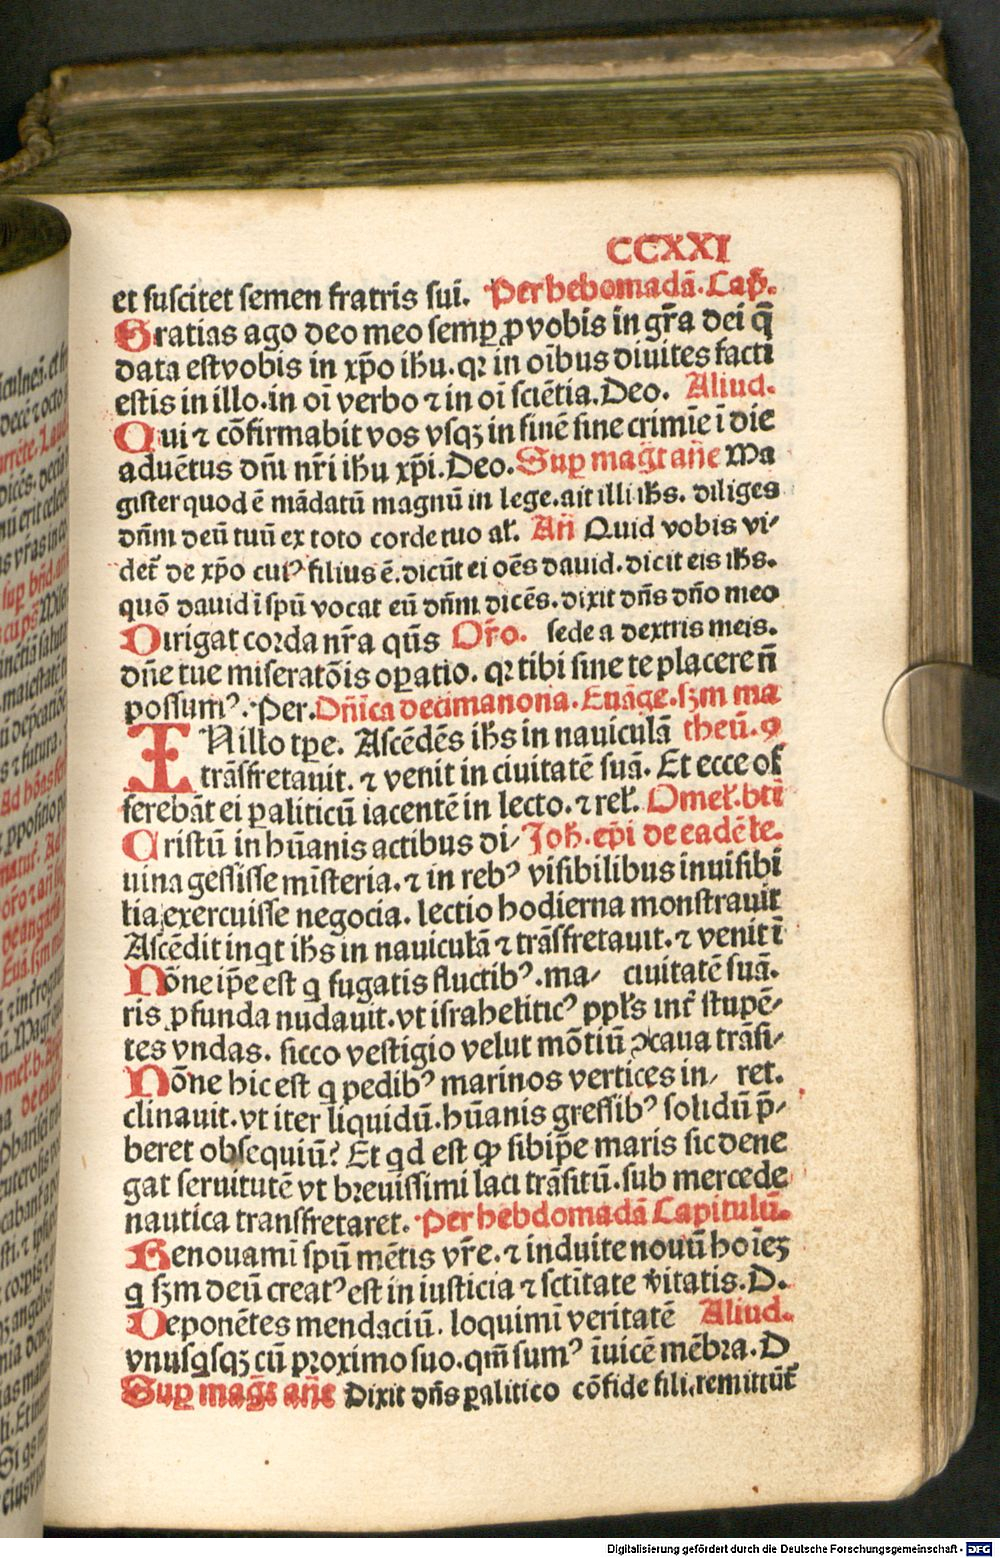 CCXXI
et suscitet semen fratris sui. Per hebomadã. Cap̃.
Gratias ago deo meo semꝑ ꝓ vobis in gr̃a dei q̃
data est vobis in xp̃o ihu. qꝛ in oĩbus diuites facti
estis in illo. in oĩ verbo ⁊ in oĩ sciẽtia. Deo. Aliud.
Qui ⁊ cõfirmabit vos vsqꝫ in finẽ sine crimĩe ĩ die
aduẽtus dñi nr̃i ihu xp̃i. Deo. Suꝑ mag̃t añe Ma
gister quod ẽ mãdatũ magnũ in lege. ait illi ihs. diliges
dñm deũ tuũ ex toto corde tuo al̃. Añ Quid vobis vi-
det̃ de xp̃o cuiꝰ filius ẽ. dicũt ei oẽs dauid. dicit eis ihs.
quõ dauid ĩ spũ vocat eũ dñm dicẽs. dixit dñs dño meo
Dirigat corda nr̃a qũs Or̃o. sede a dextris meis.
dñe tue miseratõis oꝑatio. qꝛ tibi sine te placere ñ
possumꝰ. Per. Dñica decimanona. Euãge. sꝫm ma
IN illo tꝑe. Ascẽdẽs ihs in nauiculã theũ. 9
trãsfretauit. ⁊ venit in ciuitatẽ suã. Et ecce of
ferebãt ei ꝑaliticũ iacentẽ in lecto. ⁊ rel̃. Omel̃. bti
Cristũ in hũanis actibus di- Joh. ep̃i de eadẽ le.
uina gessisse misteria. ⁊ in rebꝰ visibilibus inuisibi
lia exercuisse negocia. lectio hodierna monstrauit
Ascẽdit inqt ihs in nauiculã ⁊ trãsfretauit. ⁊ venit ĩ
Nõne ip̃e est q fugatis fluctibꝰ. ma- ciuitatẽ suã.
ris ꝓfunda nudauit. vt israheliticꝰ ppl̃s int̃ stupẽ-
tes vndas. sicco vestigio velut mõtiũ ↄcaua trãsi-
Nõne hic est q pedibꝰ marinos vertices in- ret.
clinauit. vt iter liquidũ. hũanis gressibꝰ solidũ p̃-
beret obsequiũ? Et qd est ꝙ sibip̃e maris sic dene
gat seruitutẽ vt breuissimi laci trãsitũ. sub mercede
nautica transfretaret. Per hebdomadã Capitulũ.
Renouamĩ spũ mẽtis vr̃e. ⁊ induite nouũ hoĩeꝫ
q sꝫm deũ creatꝰ est in iusticia ⁊ sctĩtate ṽitatis. D.
Deponẽtes mendaciũ. loquimĩ veritatẽ Aliud.
vnusqsqꝫ cũ proximo suo. qm̃ sumꝰ ĩuicẽ mẽbra. D
Suꝑ mag̃t añe Dixit dñs ꝑalitico cõfide fili. remittũt̃
Digitalisierung gefördert durch die Deutsche Forschungsgemeinschaft - DFG